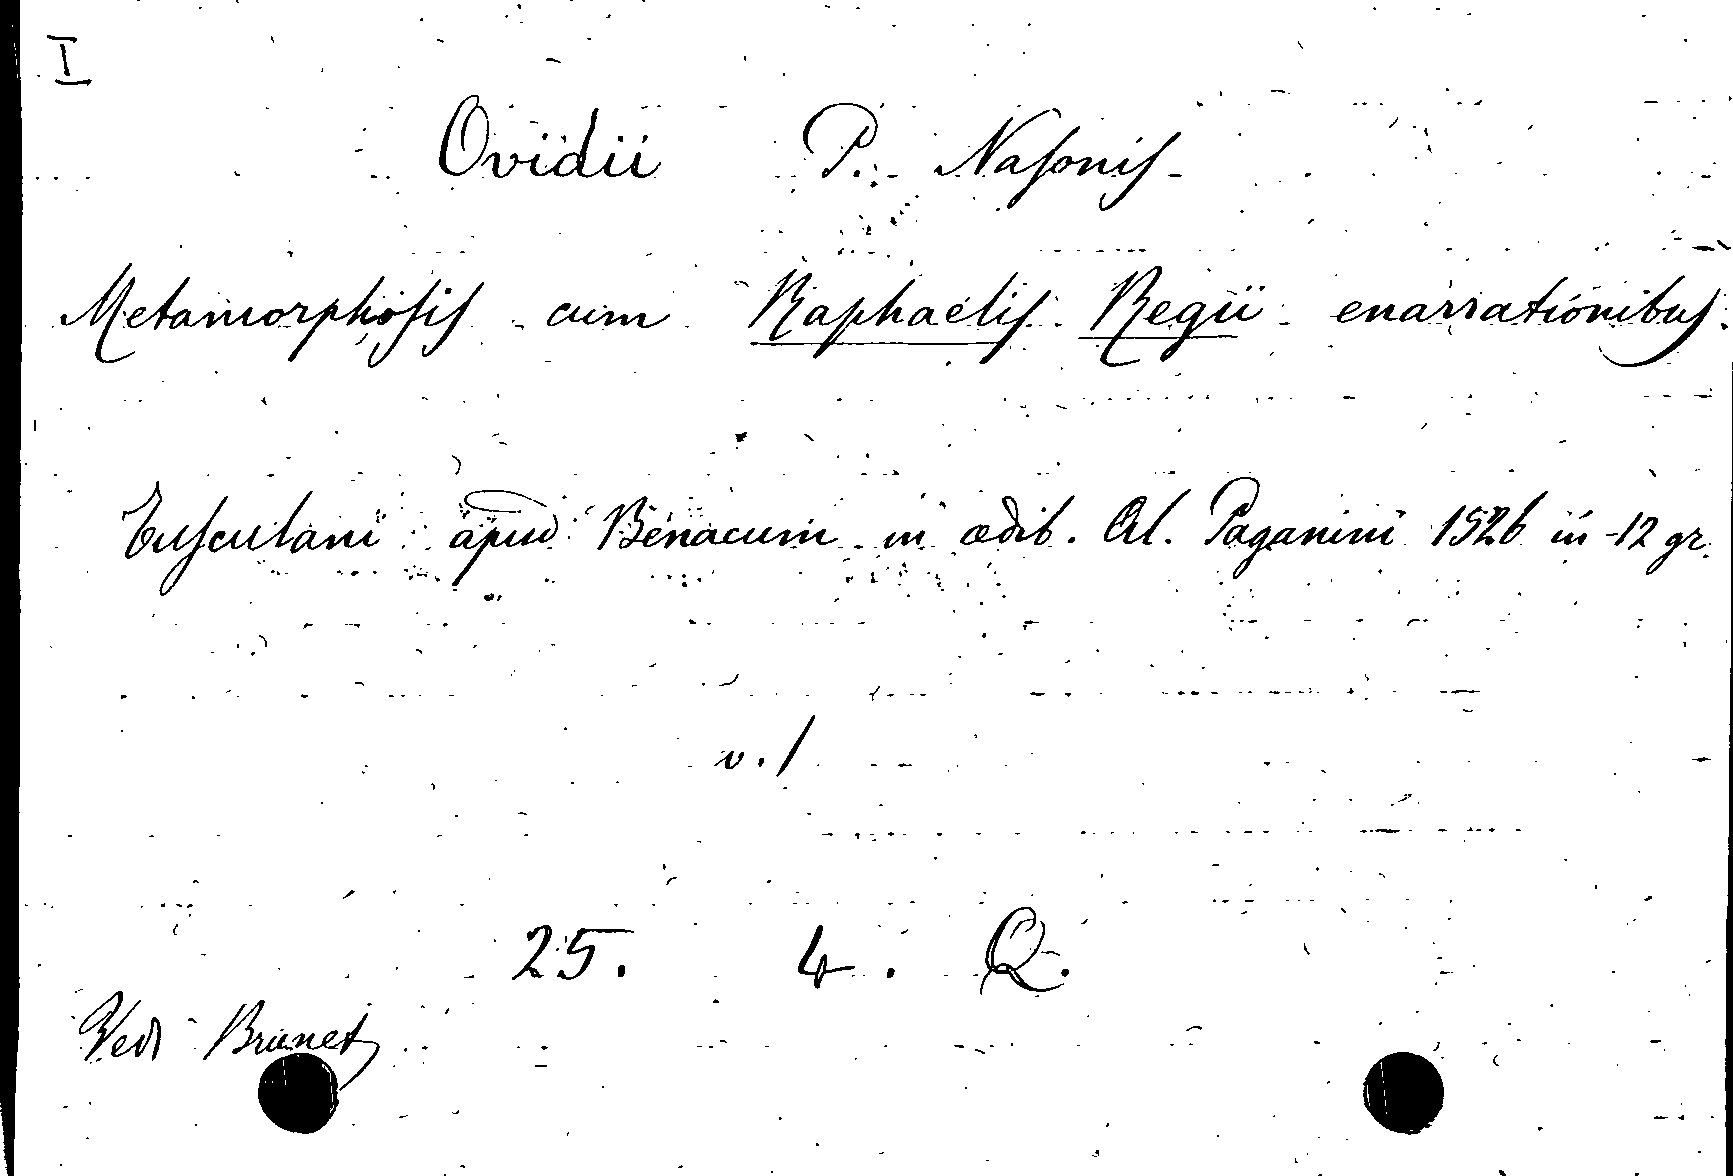 I
Ovidii P. Nasonis
Metamorphosis cum Raphaelis Regii enarrationibus.
Tusculani apud Benacum in ædib. Al. Paganini 1526 in-12 gr.
v. 1
25. 4. Q.
Vedi Brunet